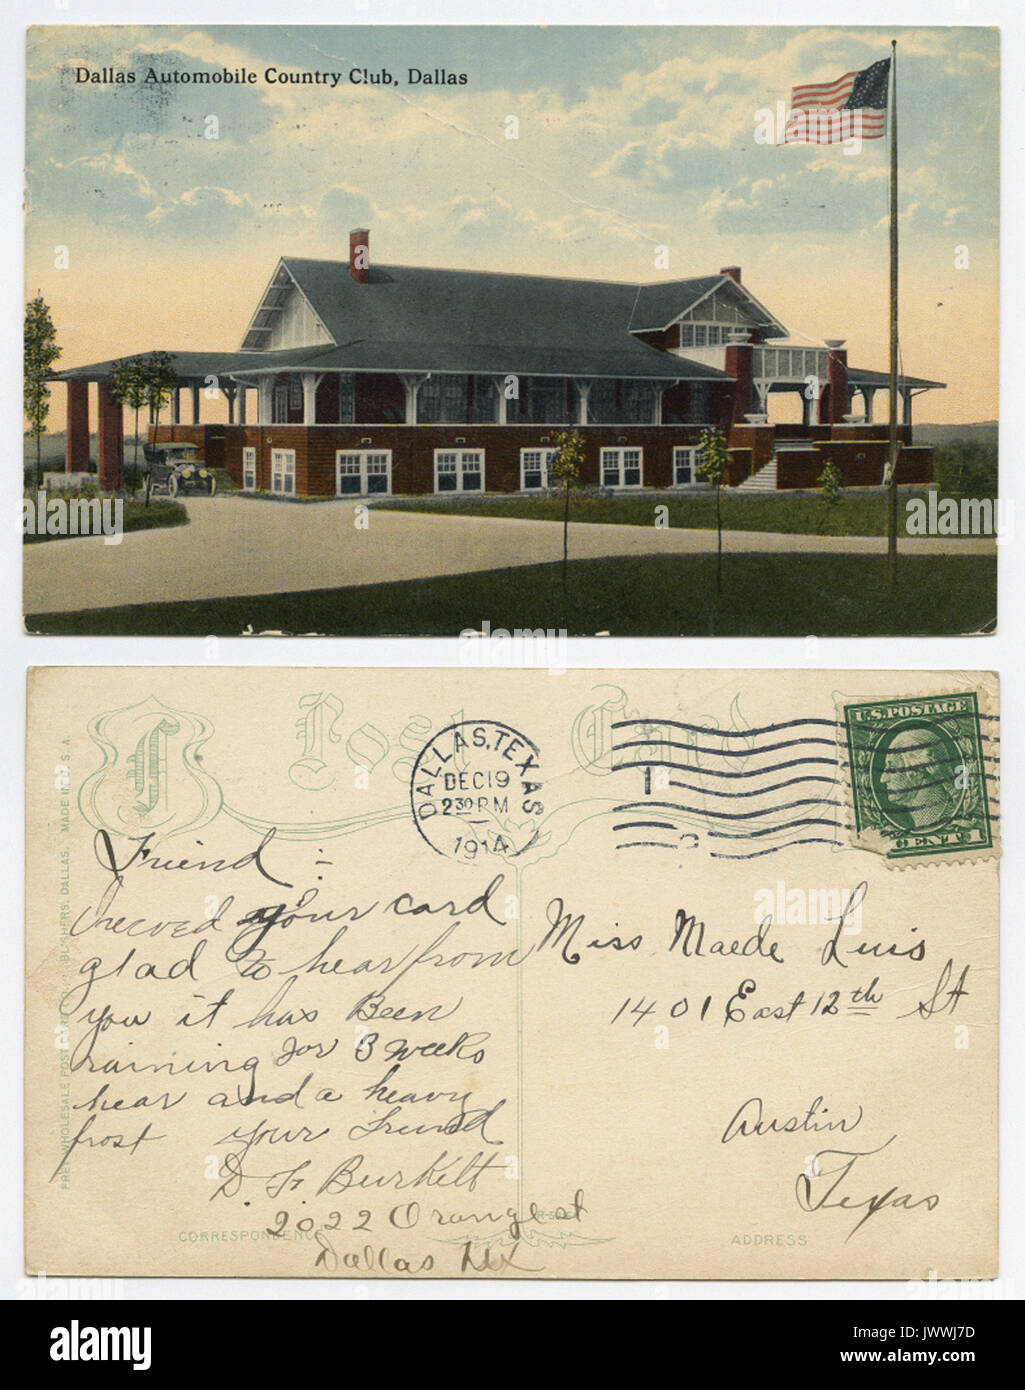 Dallas Automobile Country Club, Dallas
Post Card
DALLAS, TEXAS
DEC 19
2 30 PM
1914
U.S. POSTAGE
Friend :
I recved your card
glad to hear from
you it has Been
raining for 3 weeks
hear and a heavy
frost your Friend
D. F. Burkelt
2022 Orange st
Dallas Tex
Miss Maede Luis
1401 East 12th St
Austin
Texas
CORRESPONDENCE
ADDRESS
MADE IN U. S. A.
alamy stock photo
alamy
Image ID: JWWJ7D
www.alamy.com